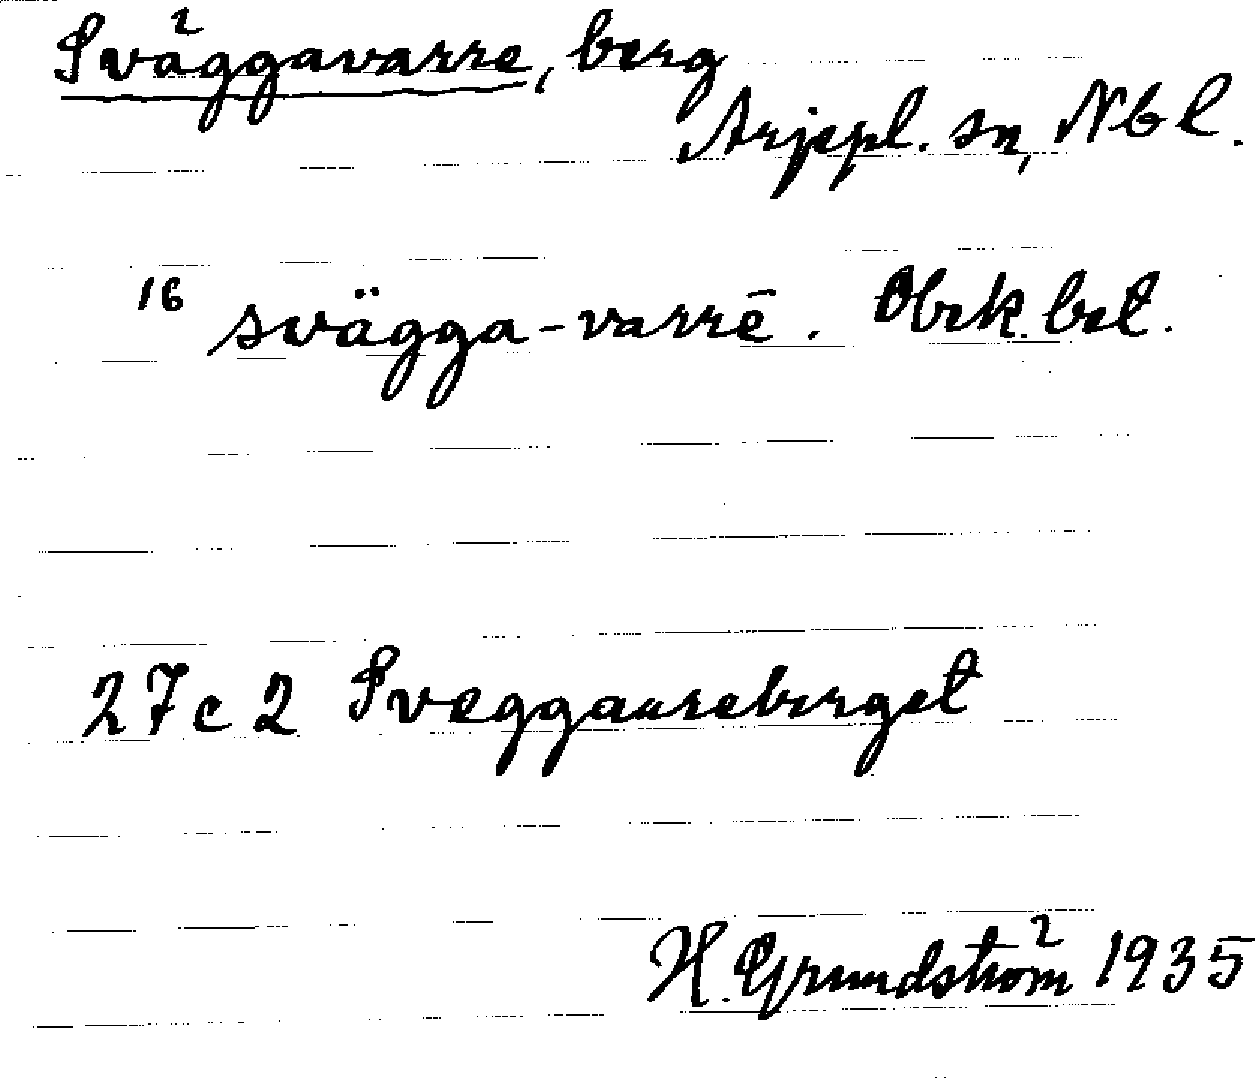 Sväggavarre, berg
Arjepl. sn, Nbl.
16 svägga-varrē. Obek. bet.
27 c 2 Sveggaureberget
H. Grundström 1935